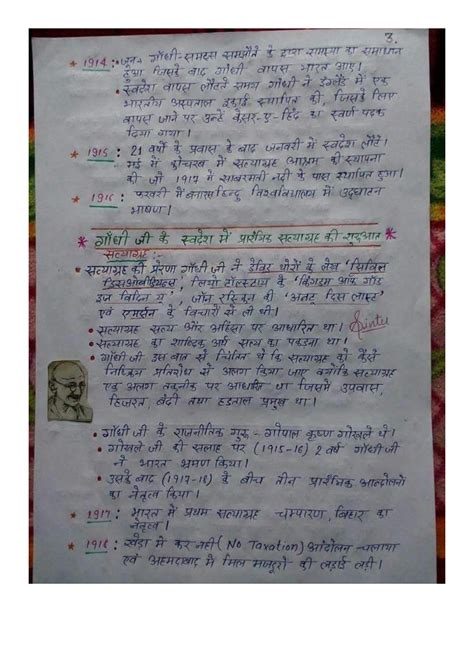 3.
* 1914 : जून - गाँधी-समट्स समझौते के द्वारा समस्या का समाधान
हुआ जिसके बाद गाँधी वापस भारत आए।
• स्वदेश वापस लौटते समय गाँधी ने इंग्लैंड में एक
भारतीय अस्पताल इकाई स्थापित की, जिसके लिए
वापस जाने पर उन्हें केसर-ए-हिंद का स्वर्ण पदक
दिया गया।
* 1915 : 21 वर्षों के प्रवास के बाद जनवरी में स्वदेश लौटे।
मई में कोचरब में सत्याग्रह आश्रम की स्थापना
की जो 1917 में साबरमती नदी के पास स्थापित हुआ।
* 1916 : फरवरी में बनारस हिन्दू विश्वविद्यालय में उद्घाटन
भाषण।
* गाँधी जी के स्वदेश में प्रारंभिक सत्याग्रह की शुरुआत *
सत्याग्रह :
• सत्याग्रह की प्रेरणा गाँधी जी ने डेविड थोरो के लेख 'सिविल
डिसओबीडियन्स', लियो टॉल्सटाय के 'किंगडम ऑफ गॉड
इज विदिन यू', जॉन रस्किन की 'अनटू दिस लास्ट'
एवं एमर्सन के विचारों से ली थी।
• सत्याग्रह सत्य और अहिंसा पर आधारित था। Sintu
• सत्याग्रह का शाब्दिक अर्थ सत्य का पकड़ना था।
• गाँधी जी इस बात से चिंतित थे कि सत्याग्रह को कैसे
निष्क्रिय प्रतिरोध से अलग किया जाए क्योंकि सत्याग्रह
एक अलग तकनीक पर आधारित था जिसमें उपवास,
हिजरत, बंदी तथा हड़ताल प्रमुख था।
• गाँधी जी के राजनीतिक गुरु - गोपाल कृष्ण गोखले थे।
• गोखले जी की सलाह पर (1915-16) 2 वर्ष गाँधी जी
ने भारत भ्रमण किया।
• उसके बाद (1917-18) के बीच तीन प्रारंभिक आन्दोलनों
का नेतृत्व किया।
* 1917 : भारत में प्रथम सत्याग्रह चम्पारण, बिहार का
नेतृत्व।
* 1918 : खेड़ा में कर नहीं (No Taxation) आंदोलन चलाया
एवं अहमदाबाद में मिल मजदूरों की लड़ाई लड़ी।